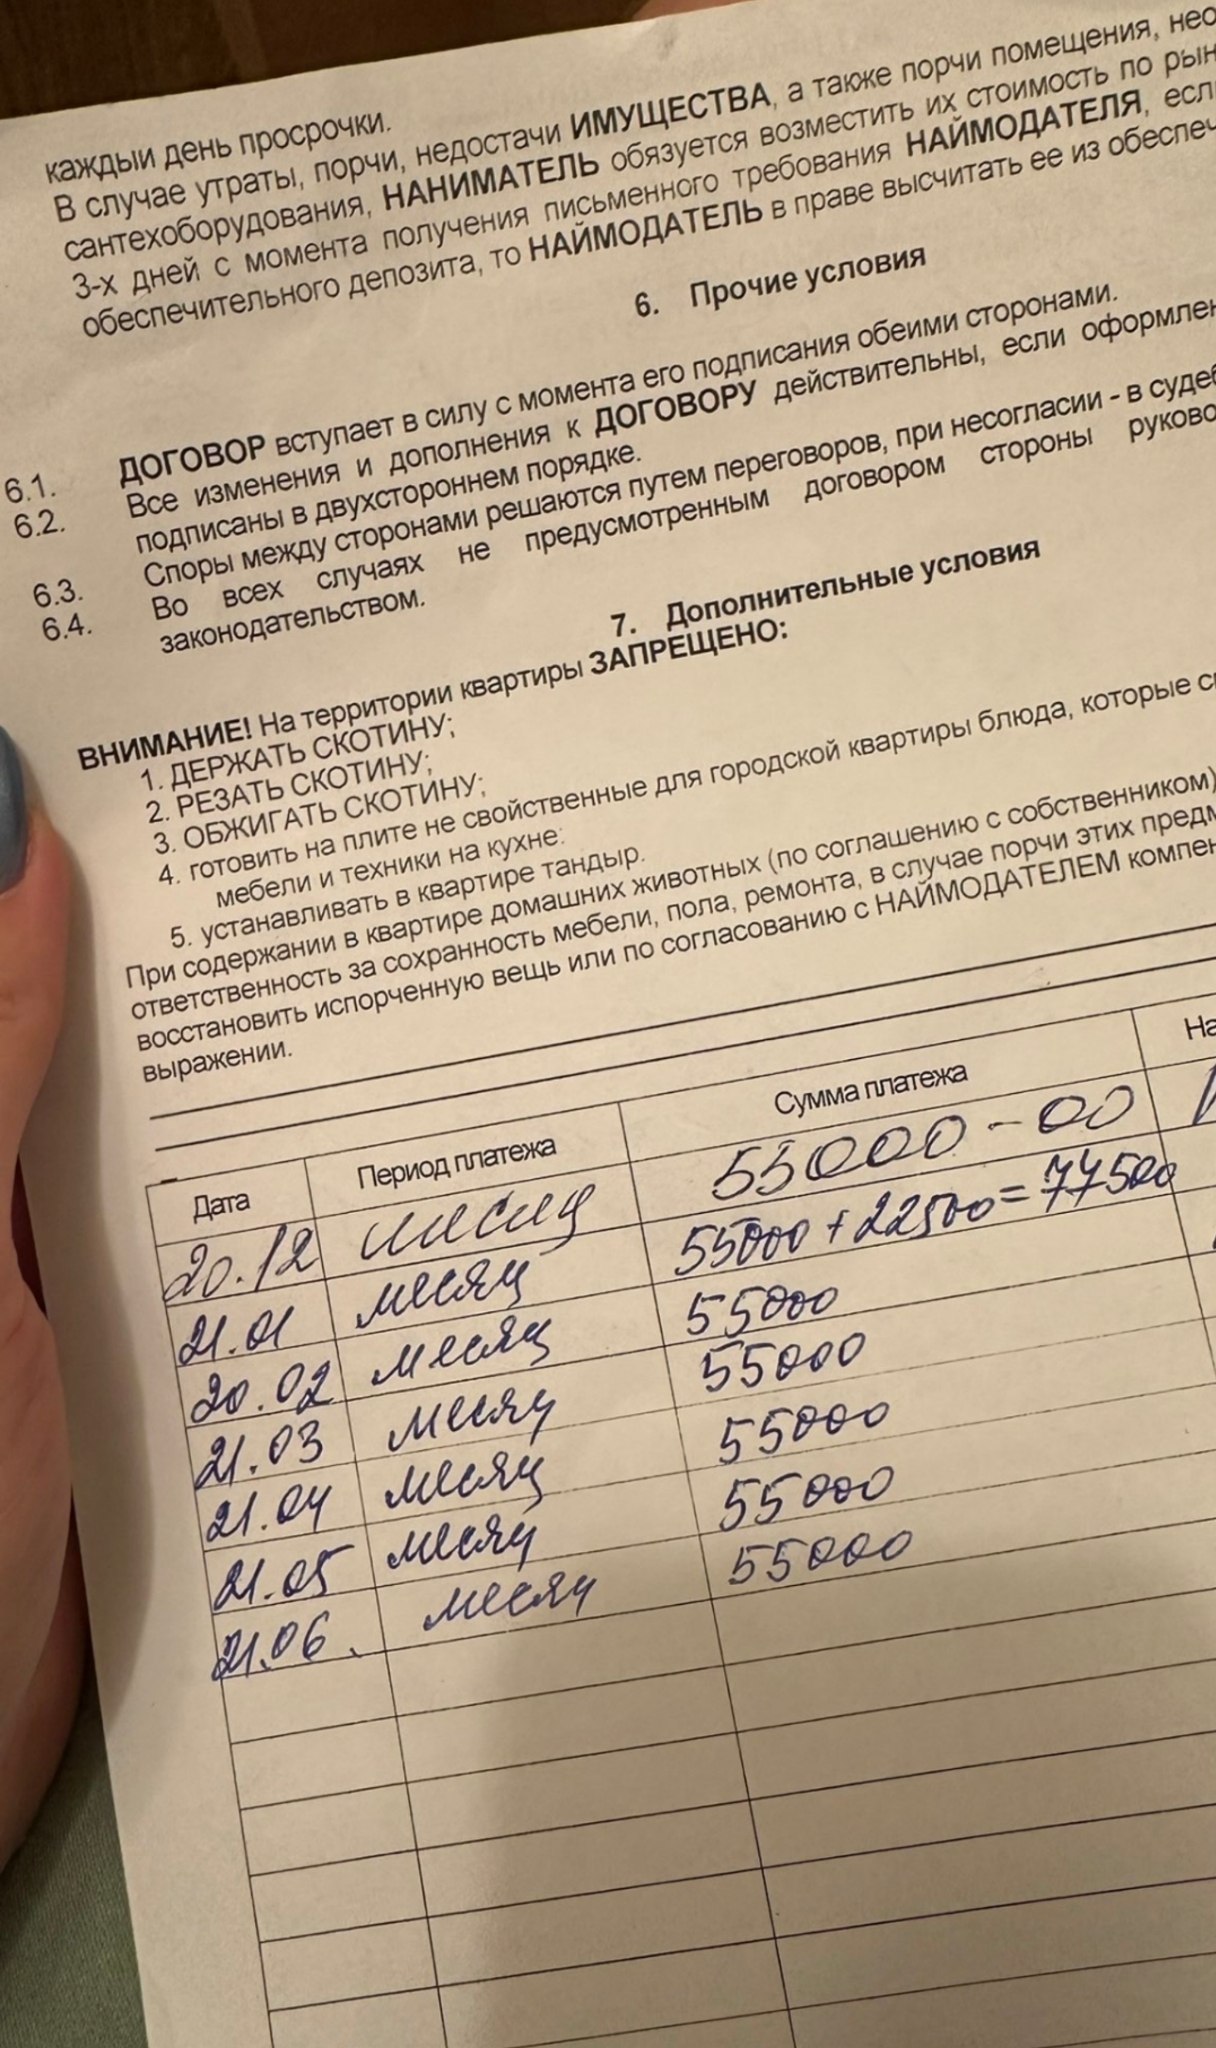 каждый день просрочки.
В случае утраты, порчи, недостачи ИМУЩЕСТВА, а также порчи помещения,
сантехоборудования, НАНИМАТЕЛЬ обязуется возместить их стоимость по
3-х дней с момента получения письменного требования НАЙМОДАТЕЛЯ,
обеспечительного депозита, то НАЙМОДАТЕЛЬ в праве высчитать ее из
6. Прочие условия
6.1. ДОГОВОР вступает в силу с момента его подписания обеими сторонами.
6.2. Все изменения и дополнения к ДОГОВОРУ действительны, если
подписаны в двухстороннем порядке.
6.3. Споры между сторонами решаются путем переговоров, при несогласии - в
6.4. Во всех случаях не предусмотренным договором стороны
законодательством.
7. Дополнительные условия
ВНИМАНИЕ! На территории квартиры ЗАПРЕЩЕНО:
1. ДЕРЖАТЬ СКОТИНУ;
2. РЕЗАТЬ СКОТИНУ;
3. ОБЖИГАТЬ СКОТИНУ;
4. готовить на плите не свойственные для городской квартиры блюда, которые
мебели и техники на кухне:
5. устанавливать в квартире тандыр.
При содержании в квартире домашних животных (по соглашению с собственником)
ответственность за сохранность мебели, пола, ремонта, в случае порчи этих
восстановить испорченную вещь или по согласованию с НАЙМОДАТЕЛЕМ
выражении.
Дата Период платежа Сумма платежа
20.12 месяц 55000-00
21.01 месяц 55000 + 22500 = 77500
20.02 месяц 55000
21.03 месяц 55000
21.04 месяц 55000
21.05 месяц 55000
21.06. месяц 55000